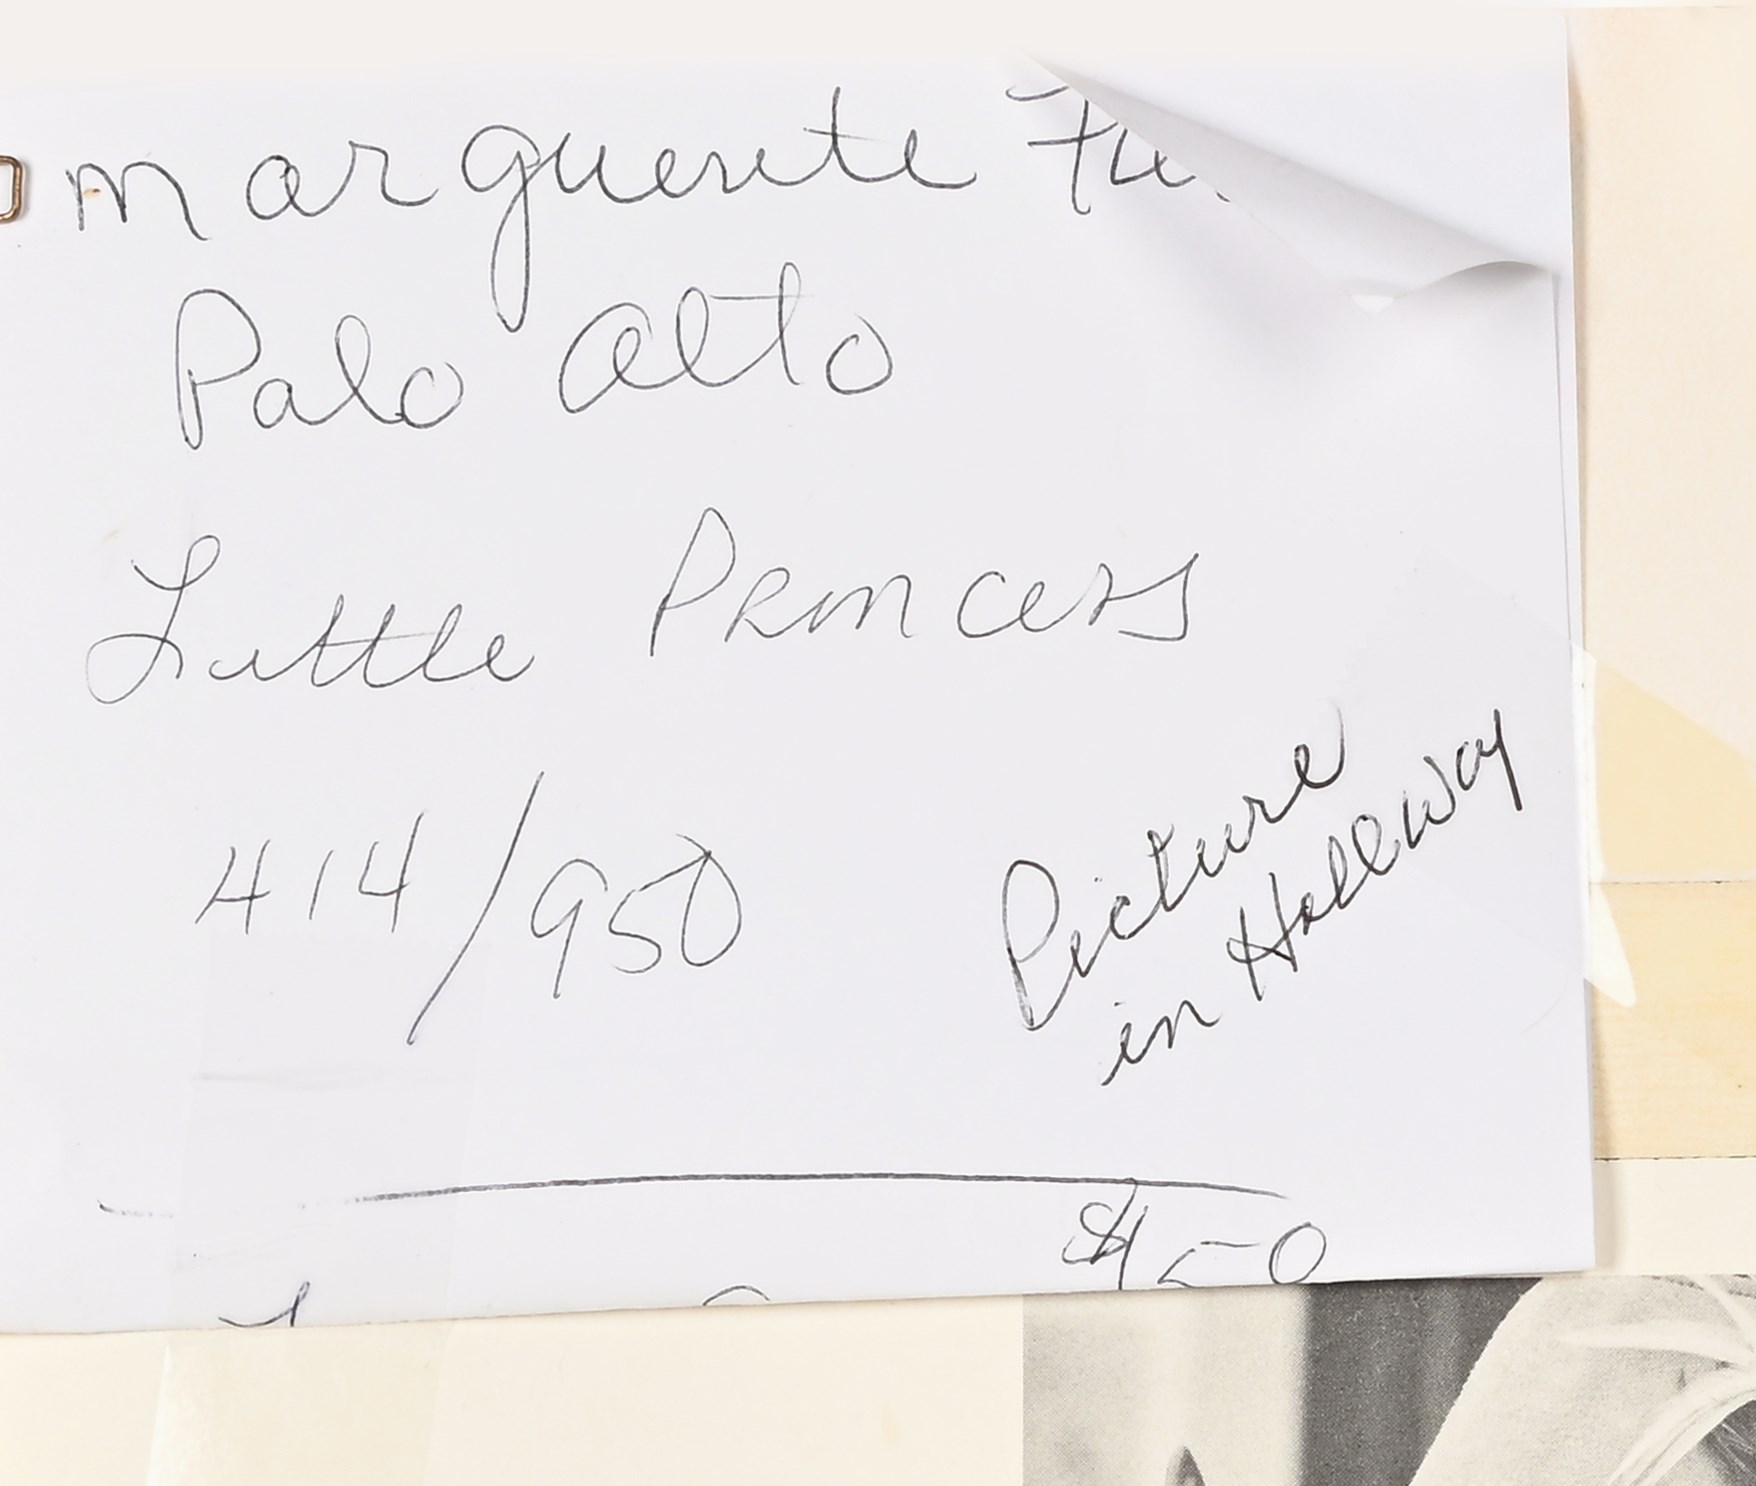 Marguerite
Palo Alto
Little Princess
414/950
Picture
in Hallway
$50